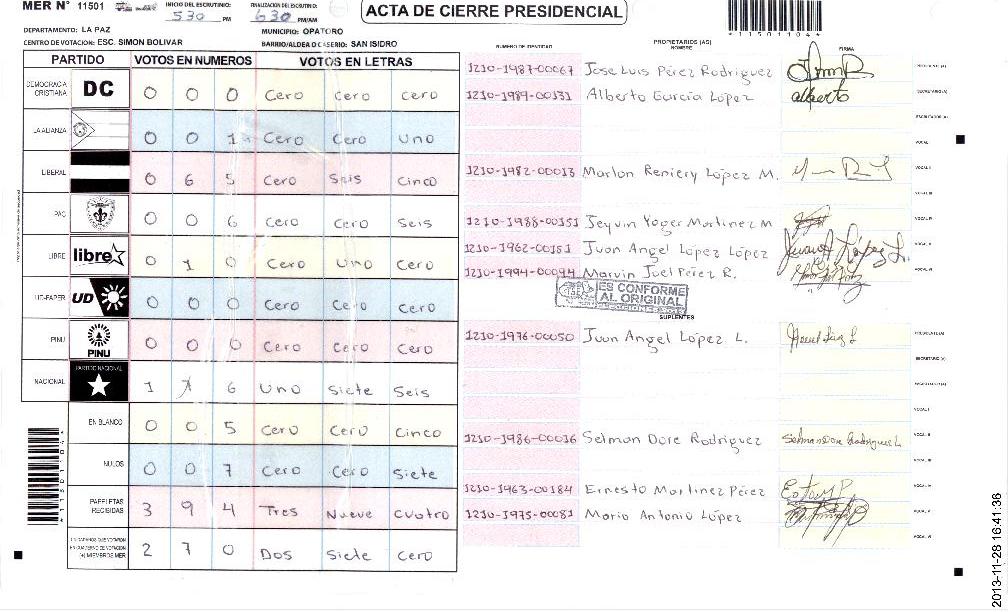 MER N° 11501
INICIO DEL ESCRUTINIO: 530 PM
FINALIZACION DEL ESCRUTINIO: 630 PM/AM
ACTA DE CIERRE PRESIDENCIAL
*11501104*
DEPARTAMENTO: LA PAZ
MUNICIPIO: OPATORO
CENTRO DE VOTACION: ESC. SIMON BOLIVAR
BARRIO/ALDEA O CASERIO: SAN ISIDRO
PARTIDO VOTOS EN NUMEROS VOTOS EN LETRAS
DEMOCRACIA CRISTIANA DC 0 0 0 Cero Cero Cero
LA ALIANZA 0 0 1 Cero Cero Uno
LIBERAL 0 6 5 Cero Seis Cinco
PAC 0 0 6 Cero Cero Seis
LIBRE libre 0 1 0 Cero Uno Cero
UD-FAPER UD 0 0 0 Cero Cero Cero
PINU PINU 0 0 0 Cero Cero Cero
NACIONAL PARTIDO NACIONAL 1 7 6 Uno Siete Seis
EN BLANCO 0 0 5 Cero Cero Cinco
NULOS 0 0 7 Cero Cero Siete
PAPELETAS RECIBIDAS 3 9 4 Tres Nueve Cuatro
2 7 0 Dos Siete Cero
NUMERO DE IDENTIDAD PROPIETARIOS (AS) NOMBRE FIRMA
1210-1987-00067 Jose Luis Pérez Rodriguez PRESIDENTE (A)
1210-1989-00131 Alberto García López alberto SECRETARIO (A)
ESCRUTADOR (A)
VOCAL I
1210-1982-00013 Marlon Reniery López M. VOCAL II
VOCAL III
1210-1988-00151 Jeyuin Yoger Martinez M VOCAL IV
1210-1962-00151 Juan Angel López López Juan A López L. VOCAL V
1210-1994-00094 Marvin Joel Pérez R. VOCAL VI
TSE ES CONFORME AL ORIGINAL
SUPLENTES
1210-1976-00050 Juan Angel López L. PRESIDENTE (A)
SECRETARIO (A)
ESCRUTADOR (A)
VOCAL I
1210-1986-00036 Selmon Dore Rodriguez VOCAL II
VOCAL III
1210-1963-00184 Ernesto Martinez Pérez VOCAL IV
1210-1975-00081 Mario Antonio López VOCAL V
VOCAL VI
2013-11-28 16:41:36